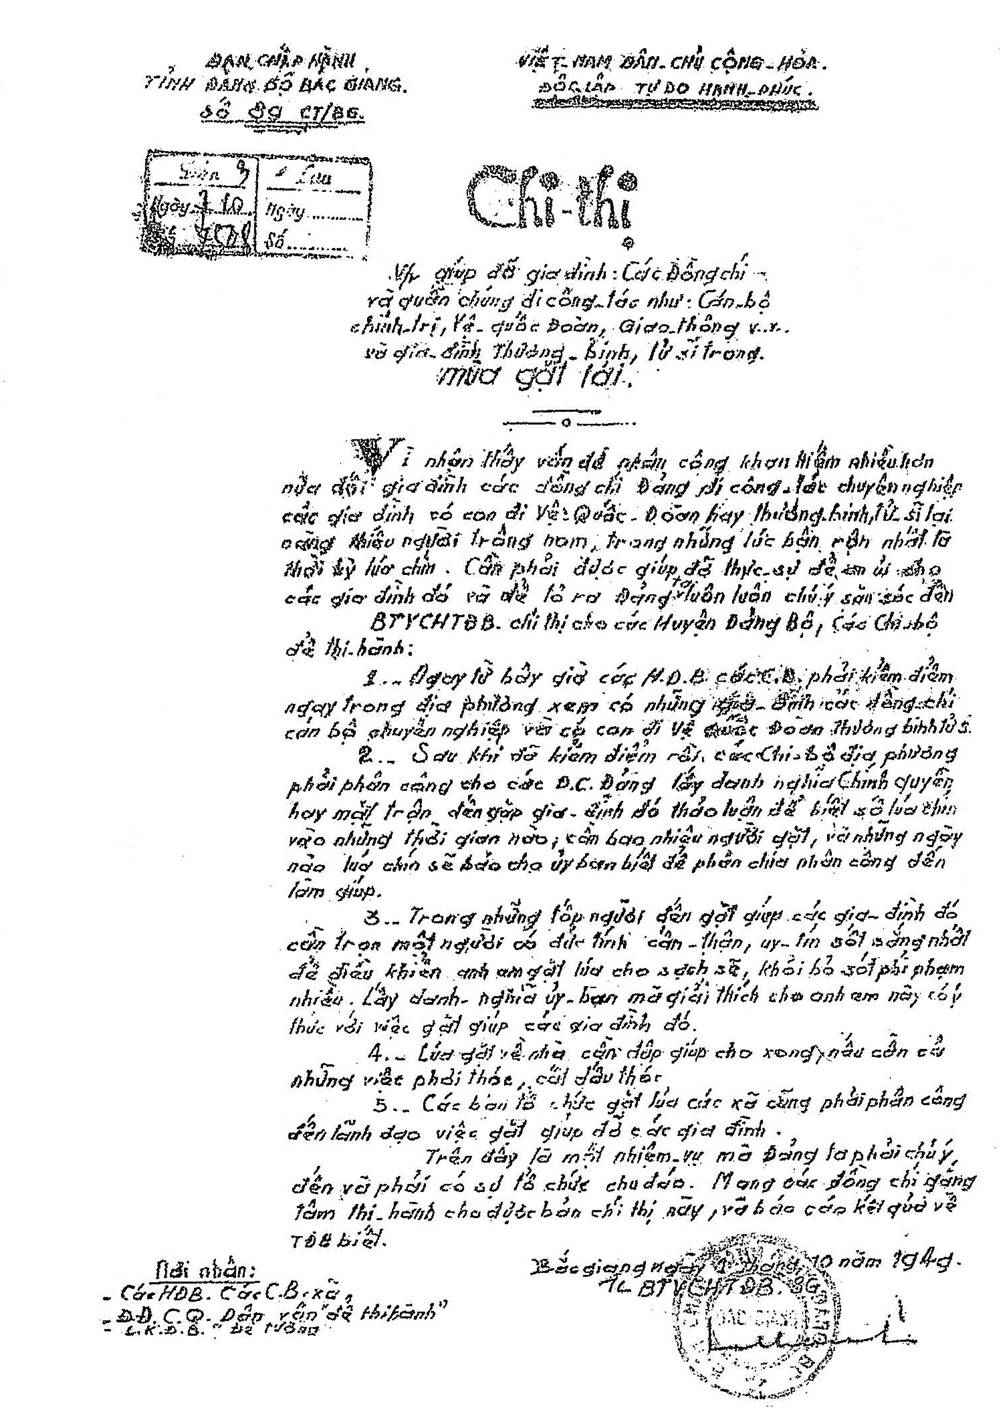 BAN CHẤP HÀNH
TỈNH ĐẢNG BỘ BẮC GIANG.
SỐ 89 CT/BG.
VIỆT-NAM DÂN-CHỦ CỘNG-HÒA.
ĐỘC LẬP TỰ DO HẠNH-PHÚC.
Lưu
Ngày 10
Ngày ..........
Số ..........
Chỉ-thị
V/v giúp đỡ gia đình: Các Đồng chí -
và quần chúng đi công-tác như: Cán-bộ
chính-trị, Vệ-quốc Đoàn, Giao-thông v.v..
và gia-đình Thương-binh, tử sĩ trong.
mùa gặt tới.
Vì nhận thấy vấn đề nhân công khan hiếm nhiều hơn
nữa đối gia đình các đồng chí Đảng đi công-tác chuyên nghiệp
các gia đình có con đi Vệ-Quốc-Đoàn hay thương-binh, tử sĩ lại
càng thiếu người trông nom, trong những lúc bận rộn nhất là
thời kỳ lúa chín. Cần phải được giúp đỡ thực-sự để an ủi cho
các gia đình đó và để tỏ ra Đảng ta luôn luôn chú ý săn sóc đến
BTVCHTĐB. chỉ thị cho các Huyện Đảng Bộ, Các Chi-bộ
để thi-hành:
1.. Ngay từ bây giờ các H.Đ.B. các C.B. phải kiểm điểm
ngay trong địa phương xem có những gia-đình các đồng-chí
cán bộ chuyên nghiệp và có con đi Vệ Quốc Đoàn Thương binh tử s.
2.. Sau khi đã kiểm điểm rồi, các Chi-bộ địa phương
phải phân công cho các Đ.C. Đảng lấy danh nghĩa Chính quyền
hay mặt trận đến gặp gia-đình đó thảo luận để biết số lúa chín
vào những thời gian nào; cần bao nhiêu người gặt, và những ngày
nào lúa chín sẽ báo cho ủy ban biết để phân chia nhân công đến
làm giúp.
3.. Trong những tốp người đến gặt giúp các gia-đình đó
cần trọn một người có đức tính cẩn-thận, uy-tín sốt sắng nhất
để điều khiển anh am gặt lúa cho sạch sẽ, khỏi bỏ sót phí phạm
nhiều. Lấy danh-nghĩa ủy-ban mà giải thích cho anh em này có ý
thức với việc gặt giúp các gia đình đó.
4.. Lúa gặt về nhà cần đập giúp cho xong, nấu cần cả
những việc phơi thóc, cất dấu thóc
5.. Các ban tổ chức gặt lúa các xã cũng phải phân công
đến lãnh đạo việc gặt giúp đỡ các gia đình.
Trên đây là một nhiệm-vụ mà Đảng ta phải chú ý,
đến và phải có sự tổ chức chu đáo. Mong các đồng chí gắng
tâm thi-hành cho được bản chỉ thị này, và báo cáo kết quả về
TĐB biết.
Nơi nhận:
- Các HĐB. Các C.B. xã,
- Đ.Đ. C.Q. Dân vận "để thi hành"
- L.K.Đ.B. " Để tường
Bắc giang ngày 1 tháng 10 năm 1949.
TL BTVCHTĐB. BG
BẮC GIANG